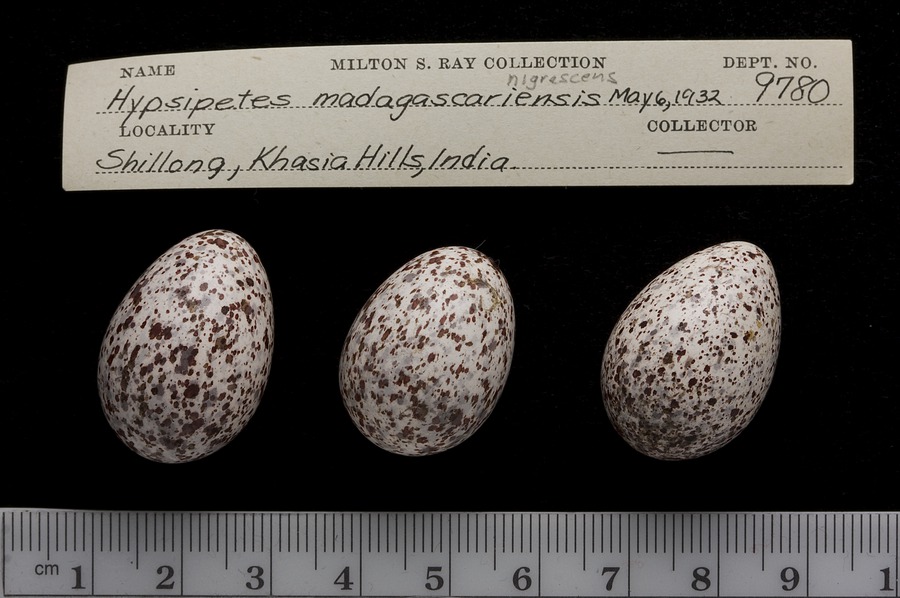 NAME MILTON S. RAY COLLECTION DEPT. NO.
nigrescens
Hypsipetes madagascariensis May 6, 1932 9780
LOCALITY COLLECTOR
Shillong, Khasia Hills, India.
cm 1 2 3 4 5 6 7 8 9 1